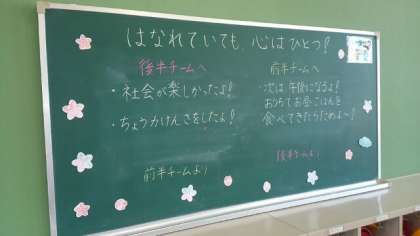 はなれていても、心はひとつ!
後半チームへ
・社会が楽しかったよ!
・ちょうかけんさをしたよ!
前半チームより
前半チームへ
・次は午後になるよ!
おうちでお昼ごはんを
食べてきたらだめよ〜!
後半チームより